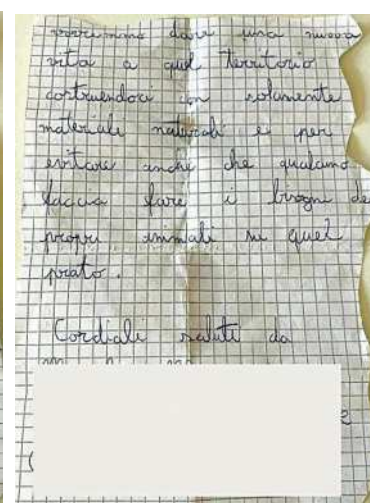 vorremmo dare una nuova
vita a quel territorio
costruendoci con solamente
materiale naturali e per
evitare anche che qualcuno
faccia fare i bisogni de
propri animali su quel
prato.
Cordiali saluti da